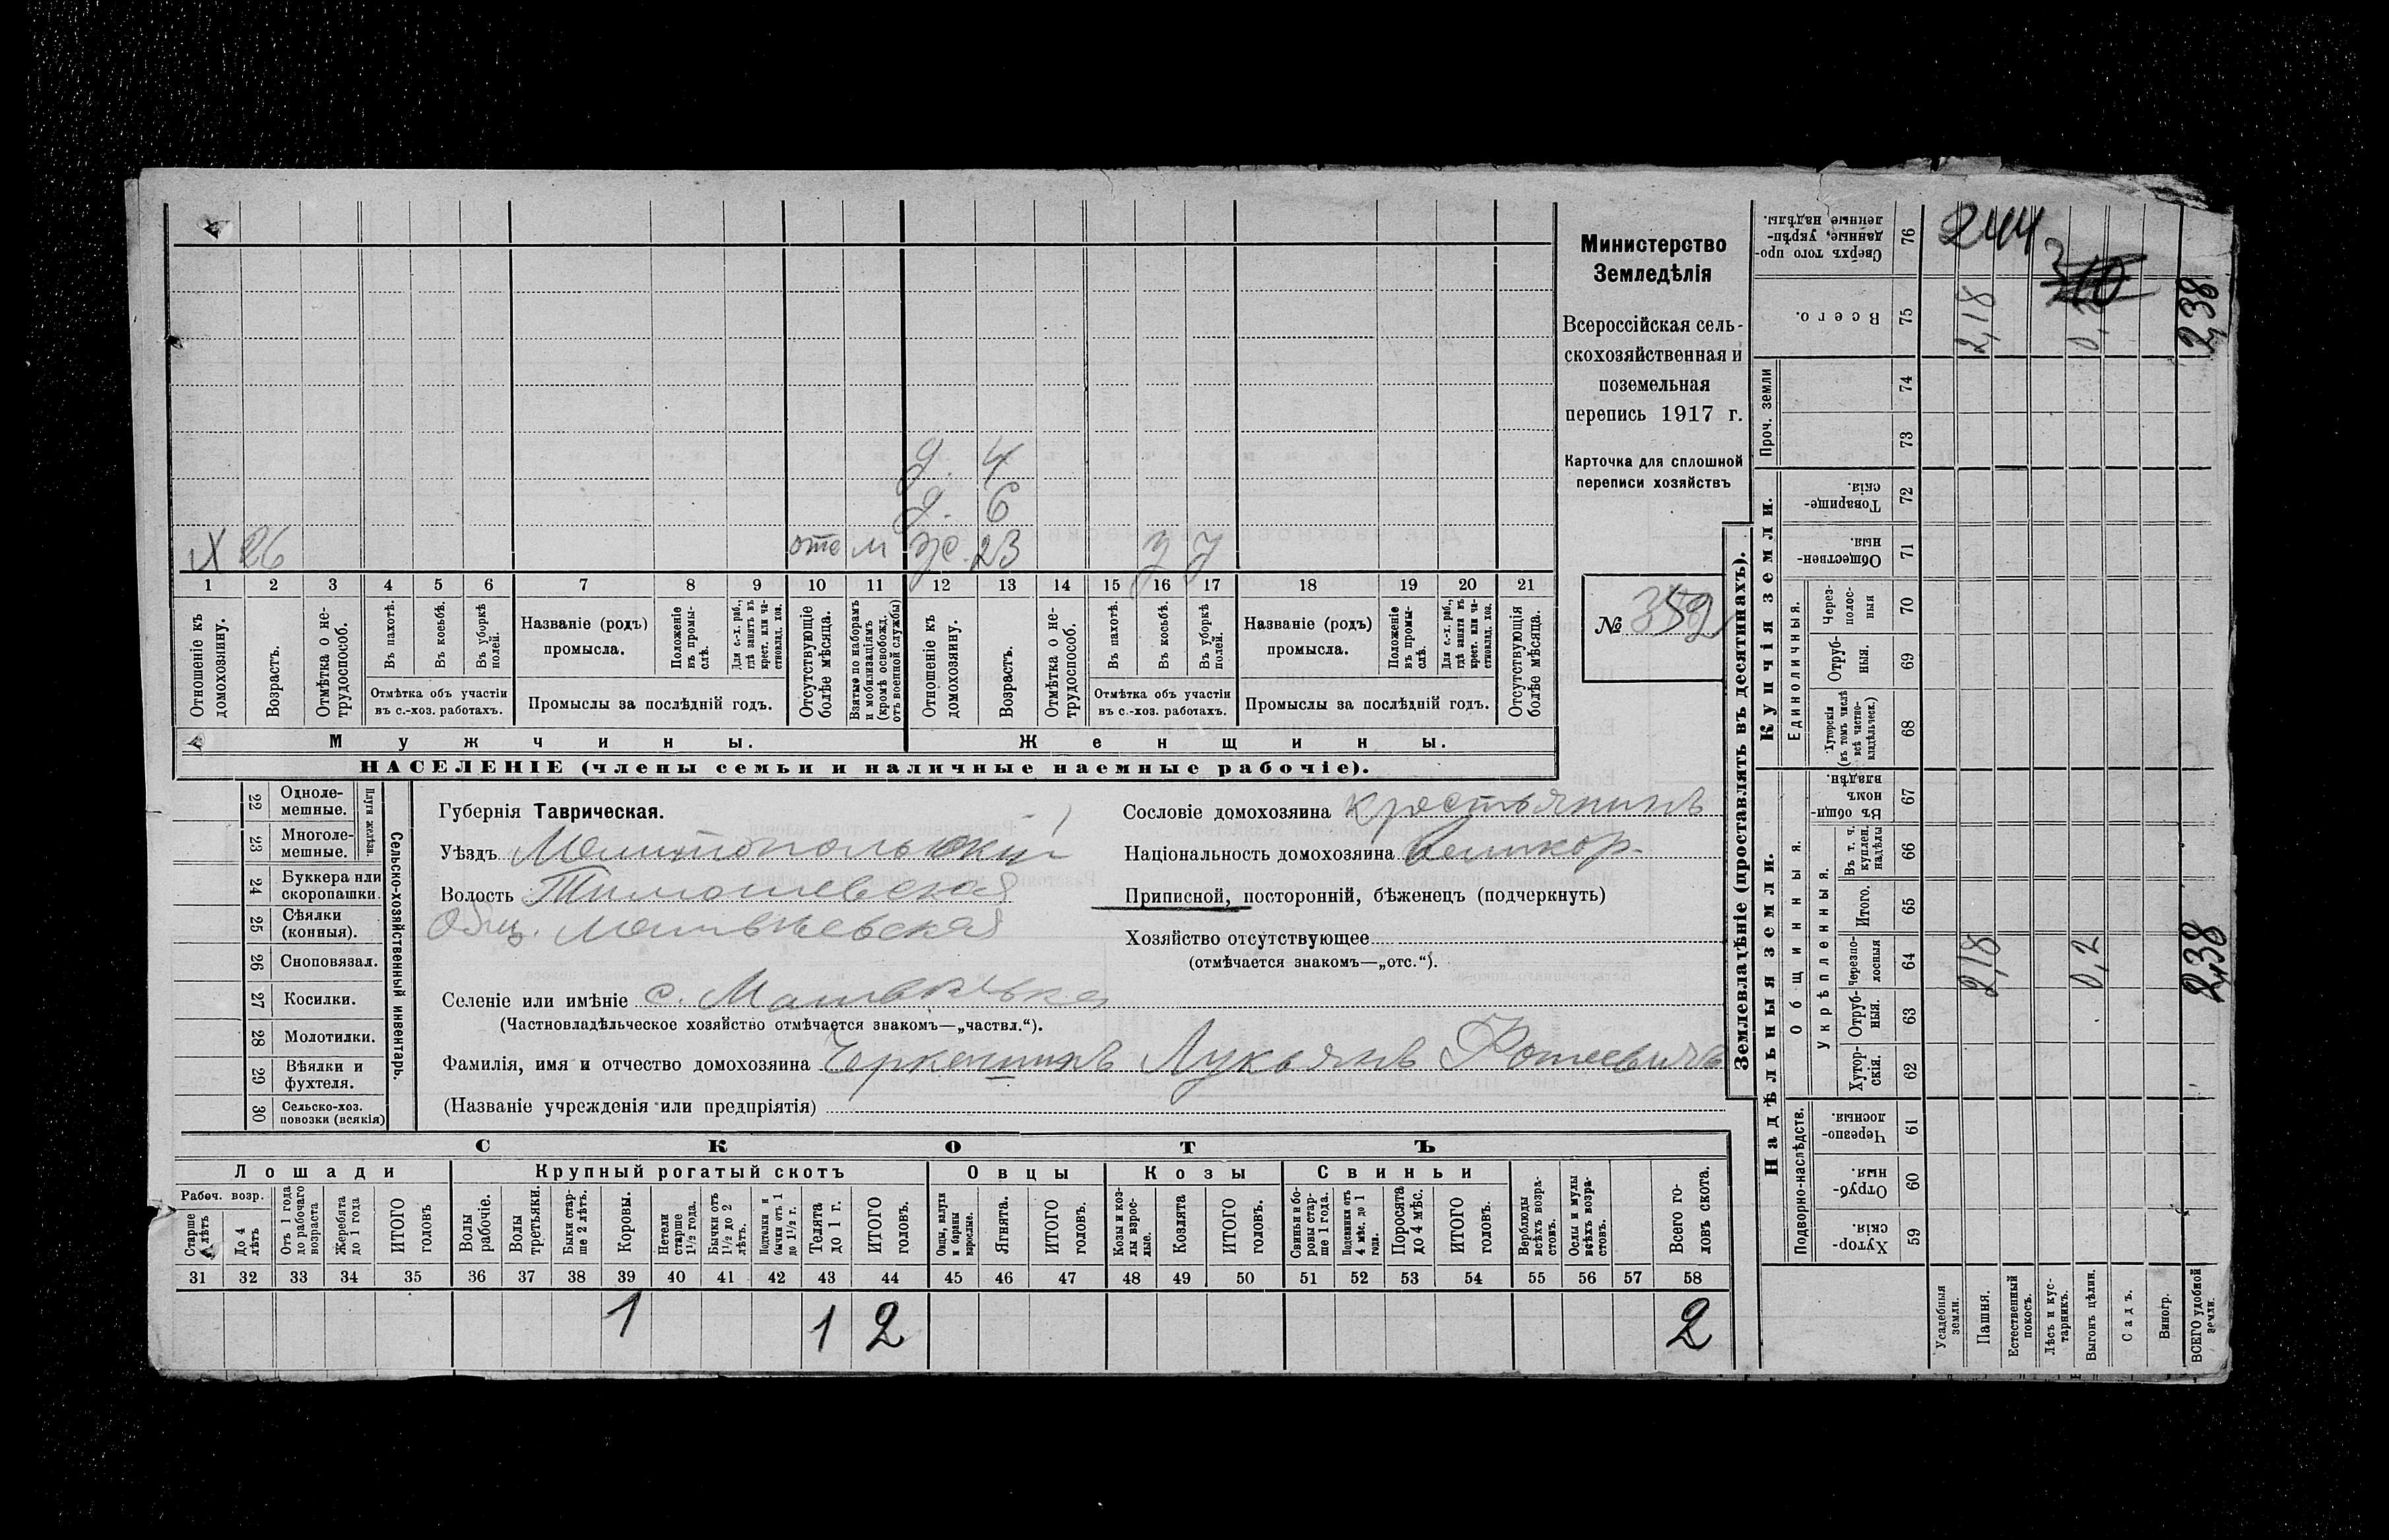 Министерство
Земледѣлія
Всероссійская сель-
скохозяйственная и
поземельная
перепись 1917 г.
Карточка для сплошной
переписи хозяйствъ
№ 359
д. 4
д. 6
Х 26 отс м ж. 23 у у
1 2 3 4 5 6 7 8 9 10 11 12 13 14 15 16 17 18 19 20 21
Отношеніе къ домохозяину.
Возрастъ.
Отмѣтка о не-трудоспособ.
Въ пахотѣ.
Въ косьбѣ.
Въ уборкѣ полей.
Отмѣтка объ участіи въ с.-хоз. работахъ.
Названіе (родъ) промысла.
Положеніе въ промы-слѣ.
Для с.-х. раб., гдѣ занятъ въ крест. или ча-стновлад. хоз.
Промыслы за послѣдній годъ.
Отсутствующіе болѣе мѣсяца.
Взятые по наборамъ и мобилизаціямъ (кромѣ освобожд. отъ военной службы)
Отношеніе къ домохозяину.
Возрастъ.
Отмѣтка о не-трудоспособ.
Въ пахотѣ.
Въ косьбѣ.
Въ уборкѣ полей.
Отмѣтка объ участіи въ с.-хоз. работахъ.
Названіе (родъ) промысла.
Положеніе въ промы-слѣ.
Для с.-х. раб., гдѣ занята въ крест. или ча-стновлад. хоз.
Промыслы за послѣдній годъ.
Отсутствующія болѣе мѣсяца.
Мужчины. Женщины.
НАСЕЛЕНІЕ (члены семьи и наличные наемные рабочіе).
22 Одноле-мешные.
23 Многоле-мешные.
Плуги желѣзн.
24 Буккера или скоропашки.
25 Сѣялки (конныя).
26 Сноповязал.
27 Косилки.
28 Молотилки.
29 Вѣялки и фухтеля.
30 Сельско-хоз. повозки (всякія)
Сельско-хозяйственный инвентарь.
Губернія Таврическая.
Уѣздъ Мелитопольскій
Волость Тимошевская
Общ. Матвѣевская
Селеніе или имѣніе с. Матвѣевка
(Частновладѣльческое хозяйство отмѣчается знакомъ—„частвл.“).
Фамилія, имя и отчество домохозяина Черкешинъ Лукьянъ Фотеевичъ
(Названіе учрежденія или предпріятія)
Сословіе домохозяина крестьянинъ
Національность домохозяина Великор.
Приписной, посторонній, бѣженецъ (подчеркнуть)
Хозяйство отсутствующее
(отмѣчается знакомъ—„отс.“).
СКОТЪ
Лошади Крупный рогатый скотъ Овцы Козы Свиньи
Рабоч. возр.
Старше 4 лѣтъ
До 4 лѣтъ
Отъ 1 года до рабочаго возраста
Жеребята до 1 года
ИТОГО головъ
Волы рабочіе.
Волы третьяки.
Быки стар-ше 2 лѣтъ.
Коровы.
Нетели старше 1½ года.
Бычки отъ 1½ до 2 лѣтъ.
Подтелки и бычки отъ 1 до 1½ г.
Телята до 1 г.
ИТОГО головъ.
Овцы, валухи и бараны взрослые.
Ягнята.
ИТОГО головъ.
Козы и коз-лы взрос-лые.
Козлята
ИТОГО головъ.
Свиньи и бо-ровы стар-ше 1 года.
Подсвинки отъ 4 мѣс. до 1 года.
Поросята до 4 мѣс.
ИТОГО головъ.
Верблюды всѣхъ возра-стовъ.
Ослы и мулы всѣхъ возра-стовъ.
Всего го-ловъ скота.
31 32 33 34 35 36 37 38 39 40 41 42 43 44 45 46 47 48 49 50 51 52 53 54 55 56 57 58
1 1 2 2
Землевладѣніе (проставлять въ десятинахъ).
Надѣльныя земли. Купчія земли. Проч. земли
Подворно-наслѣдств.
Общинныя.
Укрѣпленныя.
Единоличныя.
Хутор-скія. 59
Отруб-ныя. 60
Черезпо-лосныя. 61
Хутор-скія. 62
Отруб-ныя. 63
Черезпо-лосныя 64
Итого. 65
Въ т. ч. куплен. надѣлы 66
Въ общин-номъ владѣн. 67
Хуторскія (въ томъ числѣ всѣ частно-владѣльческ.) 68
Отруб-ныя. 69
Через-полос-ныя 70
Обществен-ныя. 71
Товарище-скія. 72
73
74
Всего. 75
Сверхъ того про-данные, укрѣп-ленные надѣлы. 76
Усадебныя земли.
Пашня.
Естественный покосъ.
Лѣсъ и кус-тарникъ.
Выгонъ цѣлин.
Садъ.
Виногр.
ВСЕГО удобной земли.
2,18 0,2 2,38
2,18 0,2 2,38
244